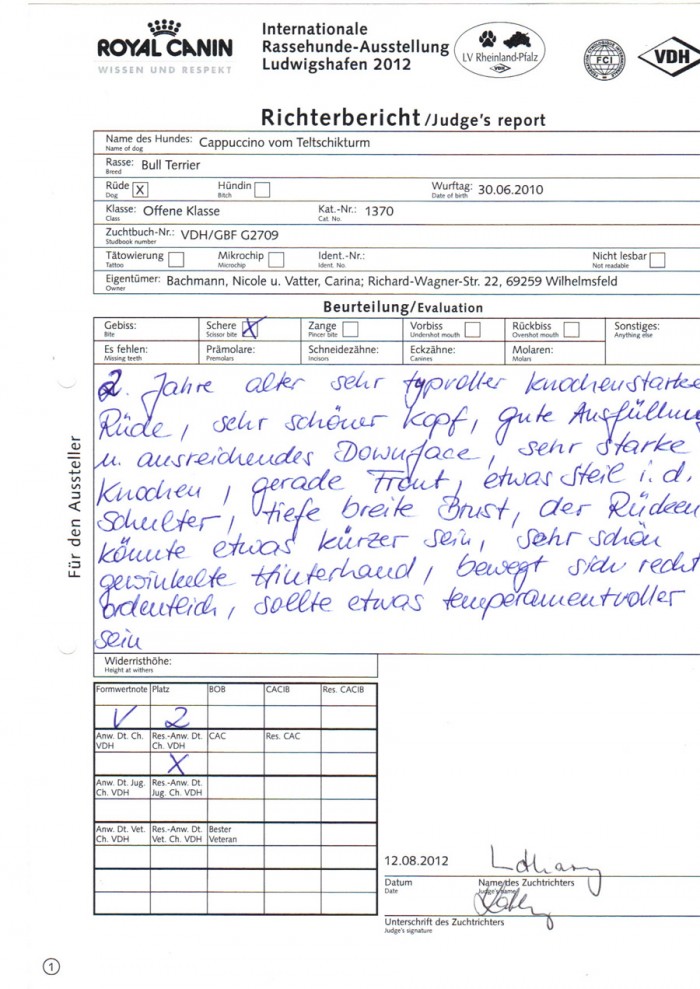 ROYAL CANIN
WISSEN UND RESPEKT
Internationale
Rassehunde-Ausstellung
Ludwigshafen 2012
LV Rheinland-Pfalz
VDH
FCI
VDH
Richterbericht /Judge's report
Name des Hundes: Cappuccino vom Teltschikturm
Name of dog
Rasse: Bull Terrier
Breed
Rüde X Hündin Wurftag: 30.06.2010
Dog Bitch Date of birth
Klasse: Offene Klasse Kat.-Nr.: 1370
Class Cat. No.
Zuchtbuch-Nr.: VDH/GBF G2709
Studbook number
Tätowierung Mikrochip Ident.-Nr.: Nicht lesbar
Tattoo Microchip Ident. No. Not readable
Eigentümer: Bachmann, Nicole u. Vatter, Carina; Richard-Wagner-Str. 22, 69259 Wilhelmsfeld
Owner
Beurteilung/Evaluation
Gebiss: Schere X Zange Vorbiss Rückbiss Sonstiges:
Bite Scissor bite Pincer bite Undershot mouth Overshot mouth Anything else
Es fehlen: Prämolare: Schneidezähne: Eckzähne: Molaren:
Missing teeth Premolars Incisors Canines Molars
2. Jahre alter sehr typvoller knochenstarke
Rüde, sehr schöner Kopf, gute Ausfüllung
u. ausreichendes Downface, sehr starke
Knochen, gerade Front, etwas steil i. d.
Schulter, tiefe breite Brust, der Rücken
könnte etwas kürzer sein, sehr schön
gewinkelte Hinterhand, bewegt sich recht
ordentlich, sollte etwas temperamentvoller
sein
Für den Aussteller
Widerristhöhe:
Height at withers
Formwertnote Platz BOB CACIB Res. CACIB
V 2
Anw. Dt. Ch. Res.-Anw. Dt. CAC Res. CAC
VDH Ch. VDH
X
Anw. Dt. Jug. Res.-Anw. Dt.
Ch. VDH Jug. Ch. VDH
Anw. Dt. Vet. Res.-Anw. Dt. Bester
Ch. VDH Vet. Ch. VDH Veteran
12.08.2012
Datum Name des Zuchtrichters
Date Judge's name
Unterschrift des Zuchtrichters
Judge's signature
1